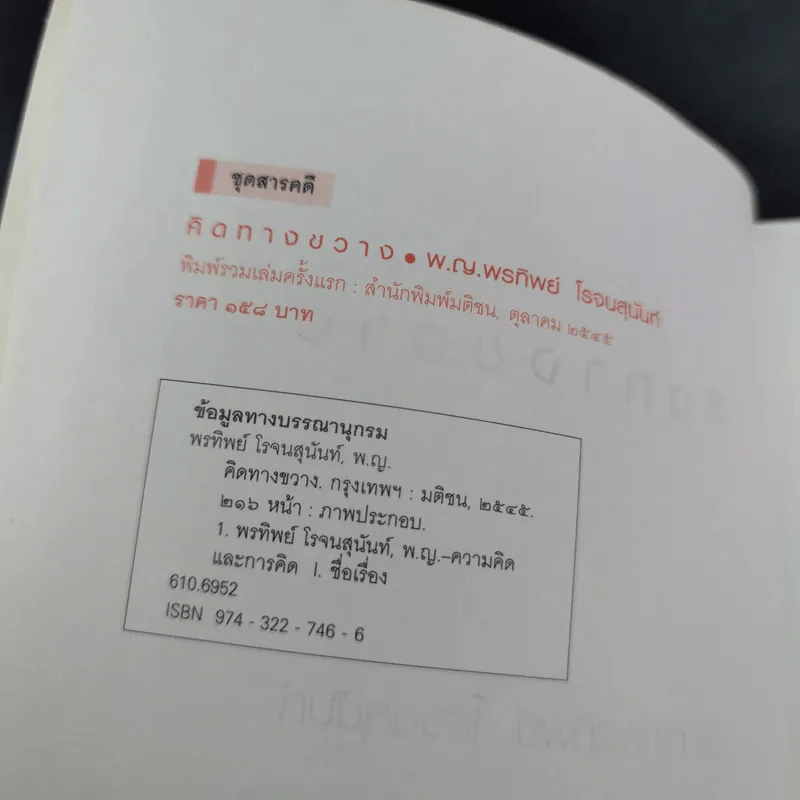 ชุดสารคดี
คิดทางขวาง • พ.ญ.พรทิพย์ โรจนสุนันท์
พิมพ์รวมเล่มครั้งแรก : สำนักพิมพ์มติชน, ตุลาคม ๒๕๔๕
ราคา ๑๕๘ บาท
ข้อมูลทางบรรณานุกรม
พรทิพย์ โรจนสุนันท์, พ.ญ.
คิดทางขวาง. กรุงเทพฯ : มติชน, ๒๕๔๕.
๒๑๖ หน้า : ภาพประกอบ.
1. พรทิพย์ โรจนสุนันท์, พ.ญ.–ความคิด
และการคิด I. ชื่อเรื่อง
610.6952
ISBN 974 - 322 - 746 - 6